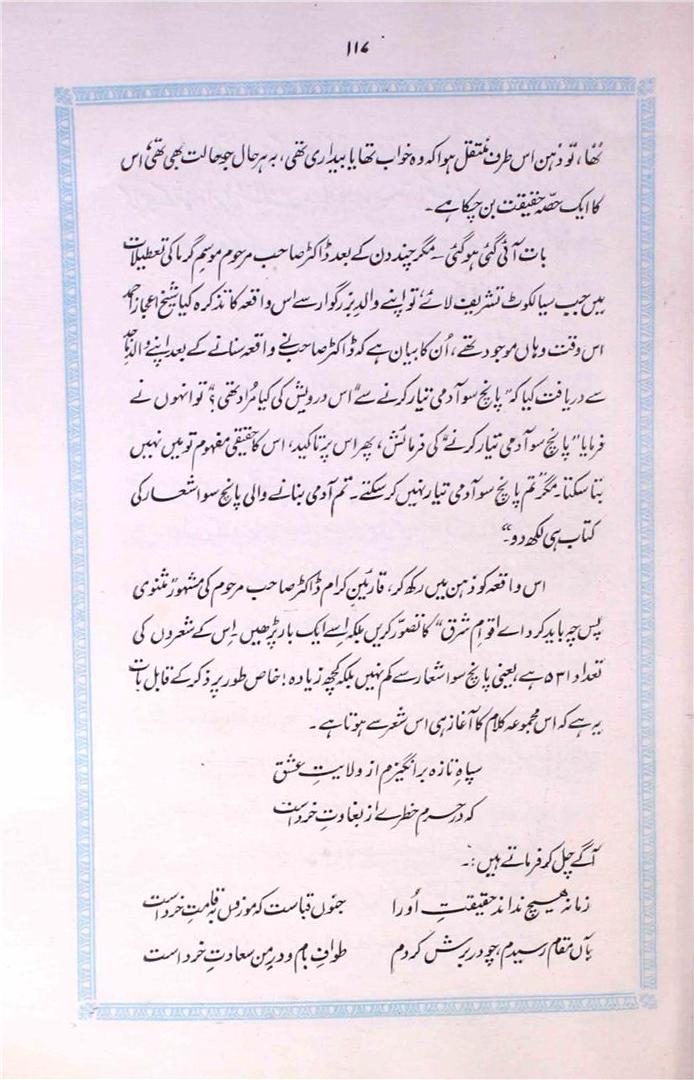 ۱۱۷
تھا، تو ذہن اس طرف منتقل ہوا کہ وہ خواب تھا یا بیداری تھی، بہ ہر حال جو حالت بھی تھی، اس
کا ایک حصّہ حقیقت بن چکا ہے۔
بات آئی گئی ہو گئی۔ مگر چند دن کے بعد ڈاکٹر صاحب مرحوم موسم گرما کی تعطیلات
میں جب سیالکوٹ تشریف لائے تو اپنے والدِ بزرگوار سے اس واقعہ کا تذکرہ کیا شیخ اعجاز احمد
اس وقت وہاں موجود تھے، اُن کا بیان ہے کہ ڈاکٹر صاحب نے واقعہ سنانے کے بعد اپنے والدِ ماجد
سے دریافت کیا کہ "پانچ سو آدمی تیار کرنے سے" اس درویش کی کیا مُراد تھی؟" تو انہوں نے
فرمایا "پانچ سو آدمی تیار کرنے" کی فرمائش، پھر اس پر تاکید، اس کا حقیقی مفہوم تو میں نہیں
بتا سکتا۔ مگر "تم پانچ سو آدمی تیار نہیں کر سکتے۔ تم آدمی بنانے والی پانچ سو اشعار کی
کتاب ہی لکھ دو۔"
اس واقعہ کو ذہن میں رکھ کر، قارئینِ کرام ڈاکٹر صاحب مرحوم کی مشہور مثنوی
پس چہ باید کرد اے اقوامِ شرق" کا تصوّر کریں بلکہ اِسے ایک بار پڑھیں۔ اِس کے شعروں کی
تعداد ۵۳۱ ہے، یعنی پانچ سو اشعار سے کم نہیں بلکہ کچھ زیادہ! خاص طور پر ذکر کے قابل بات
یہ ہے کہ اس مجموعہ کلام کا آغاز ہی اس شعر سے ہوتا ہے۔
سپاہِ تازہ برانگیزم از ولایتِ عشق
کہ در حرم خطرے از بغاوتِ خرد است
آگے چل کر فرماتے ہیں :۔
زمانہ ہیچ نداند حقیقتِ اُو را جنوں قباست کہ موزوں بہ قامتِ خرد است
بآں مقام رسیدم، چو در برش کردم طوافِ بام و درِ من سعادتِ خرد است